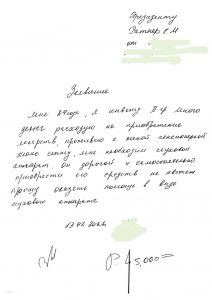 Президенту
Ратнер Е.М
от
Заявление
Мне 84 года, я инвалид II гр много
денег расходую на приобретение
лекарств, проживаю с женой пенсионеркой
плохо слышу, мне необходим слуховой
аппарат он дорогой и самостоятельно
приобрести его средств не хватает
прошу оказать помощь в виде
слухового аппарата.
13.07
P. 45.000=